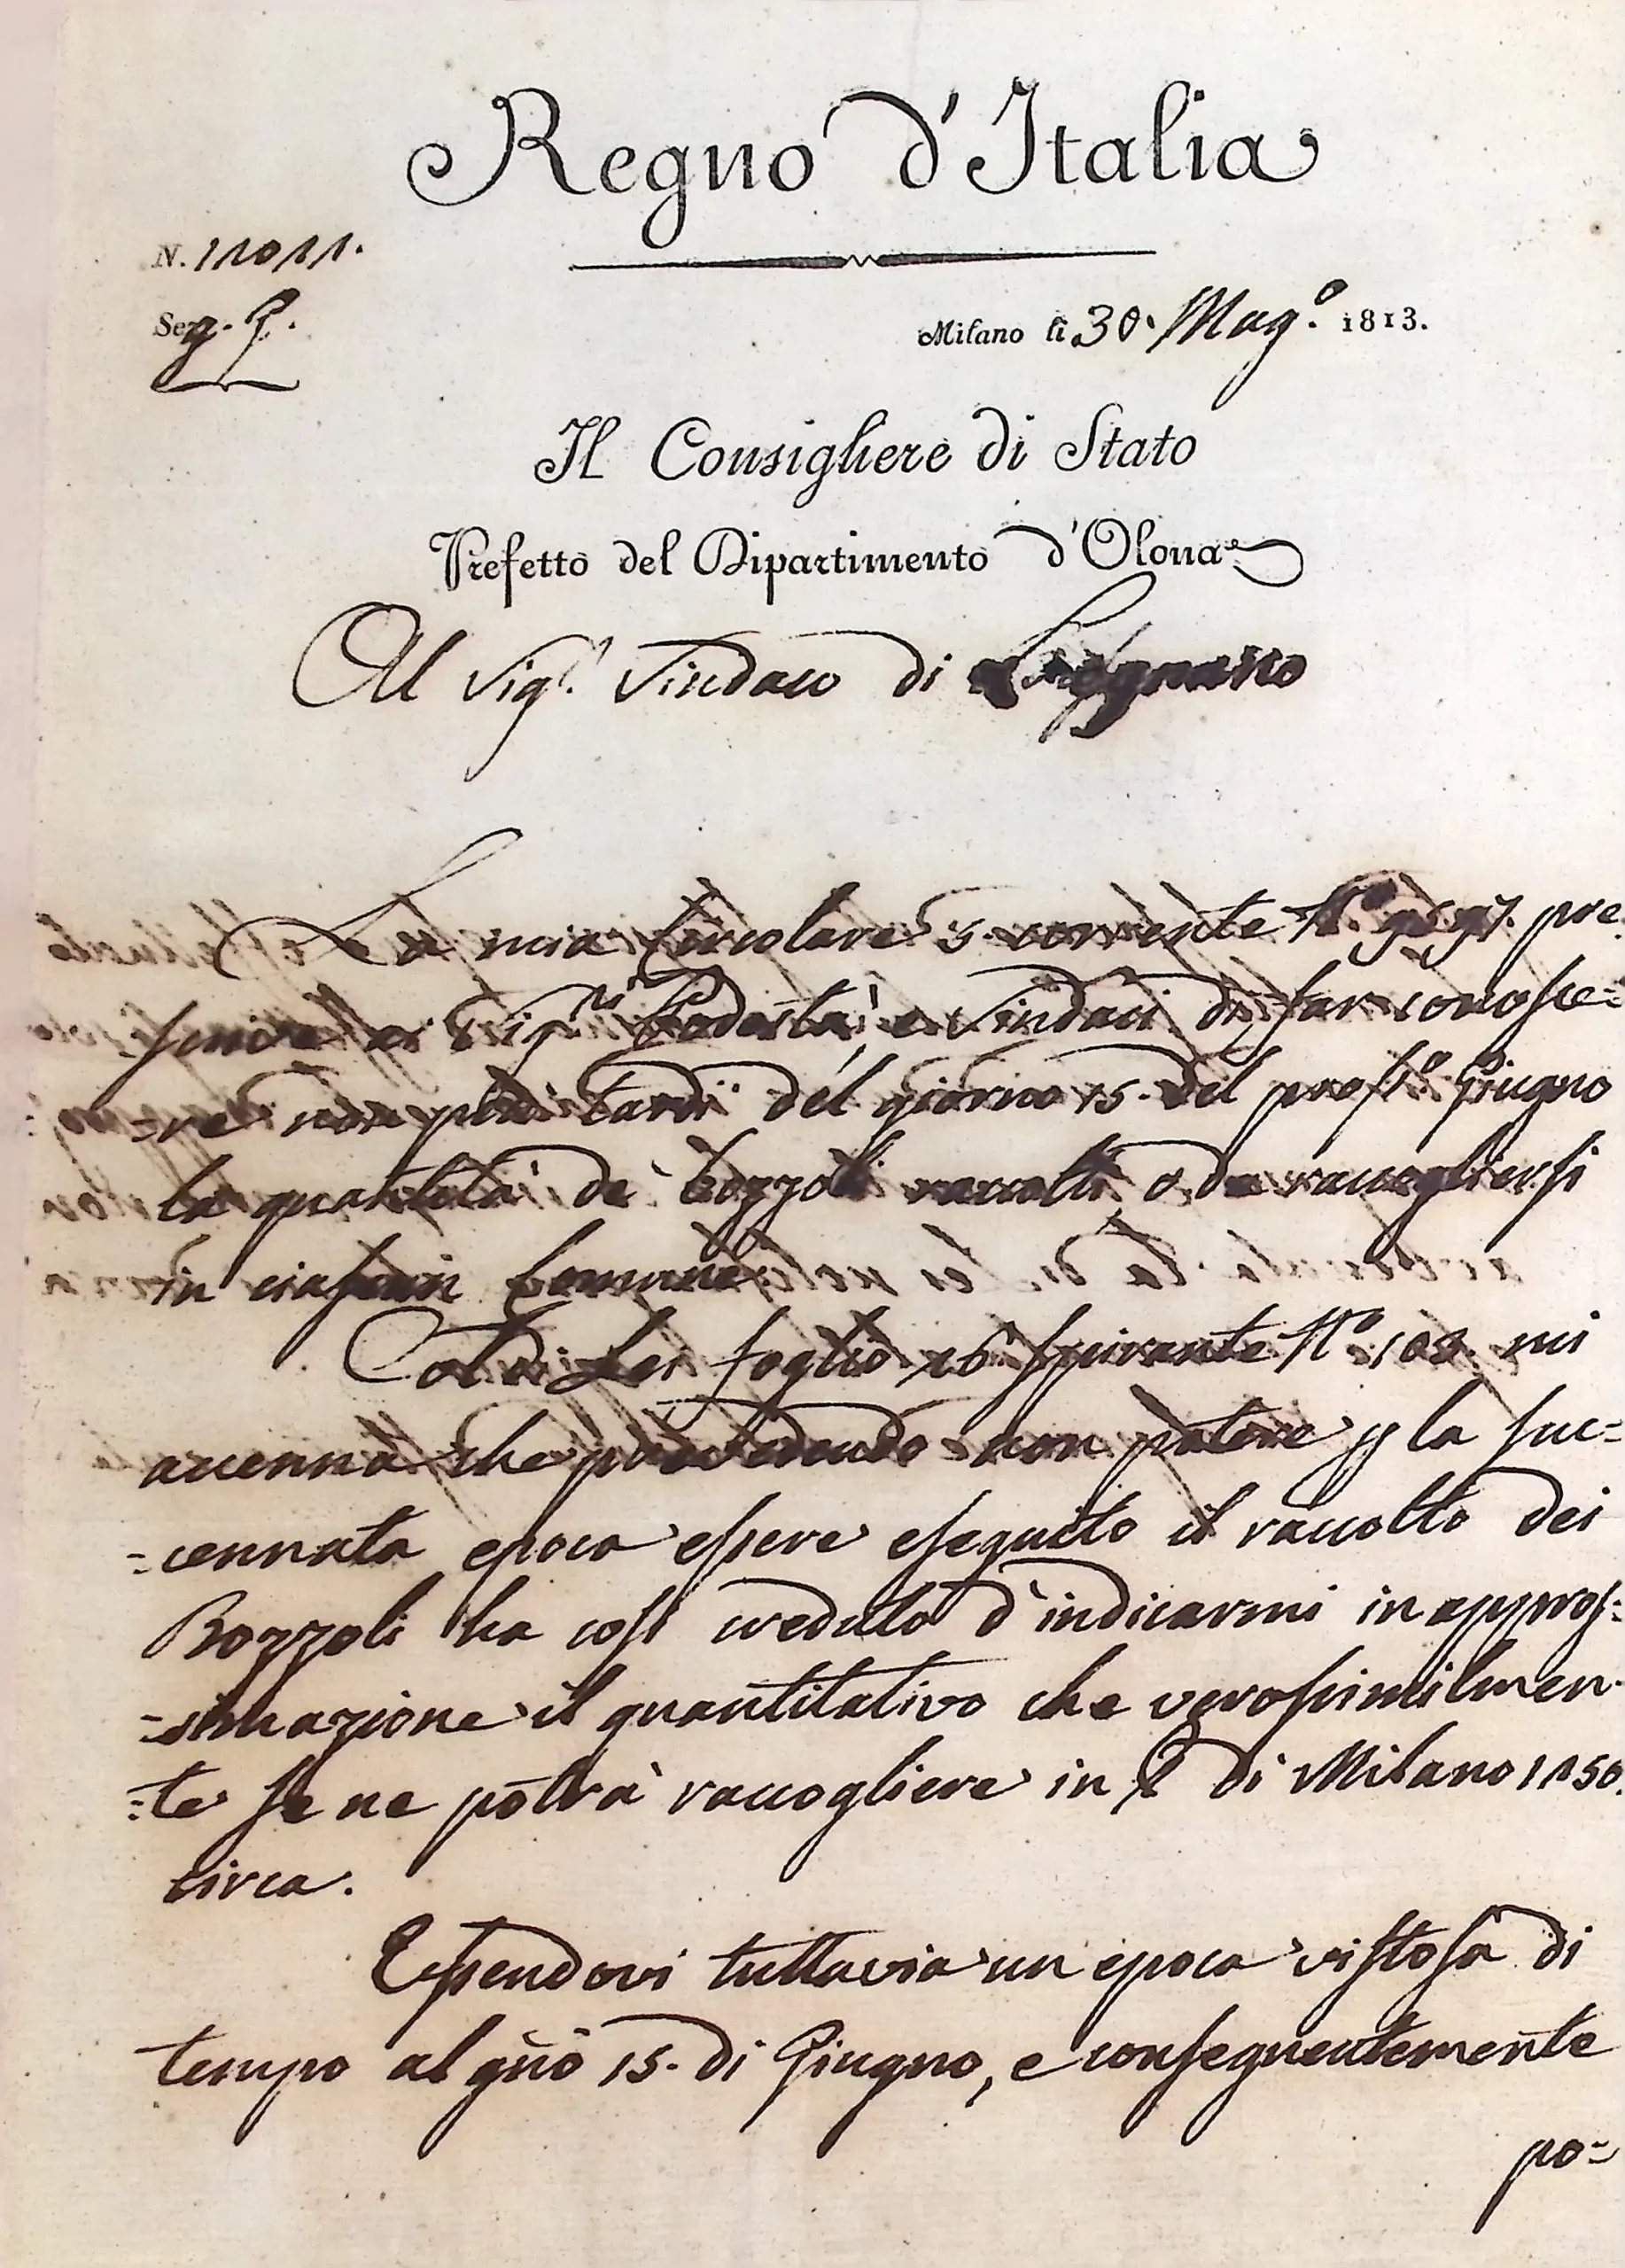 Regno d'Italia
N. 11011.
Sez. 2.
Milano li 30. Mag.o 1813.
Il Consigliere di Stato
Prefetto del Dipartimento d'Olona
Al Sig.r Sindaco di
La mia Circolare 5. corrente N.o pre-
scrive ai Sig.ri Podestà, e Sindaci di far conosce=
=re non più tardi del giorno 15. del pross.o Giugno
la quantità de' bozzoli raccolti, o da raccogliersi
in ciascun Comune.
Col di Lei foglio 26 spirante N.o 103. mi
accenna che prevedendo non potere p la suc=
=cennata epoca essere eseguito il raccolto dei
Bozzoli ha così creduto d'indicarmi in appros=
=simazione il quantitativo che verosimilmen-
=te se ne potrà raccogliere in di Milano 1150.
circa.
Essendovi tuttavia un epoca vistosa di
tempo al gño 15. di Giugno, e conseguentemente
po=